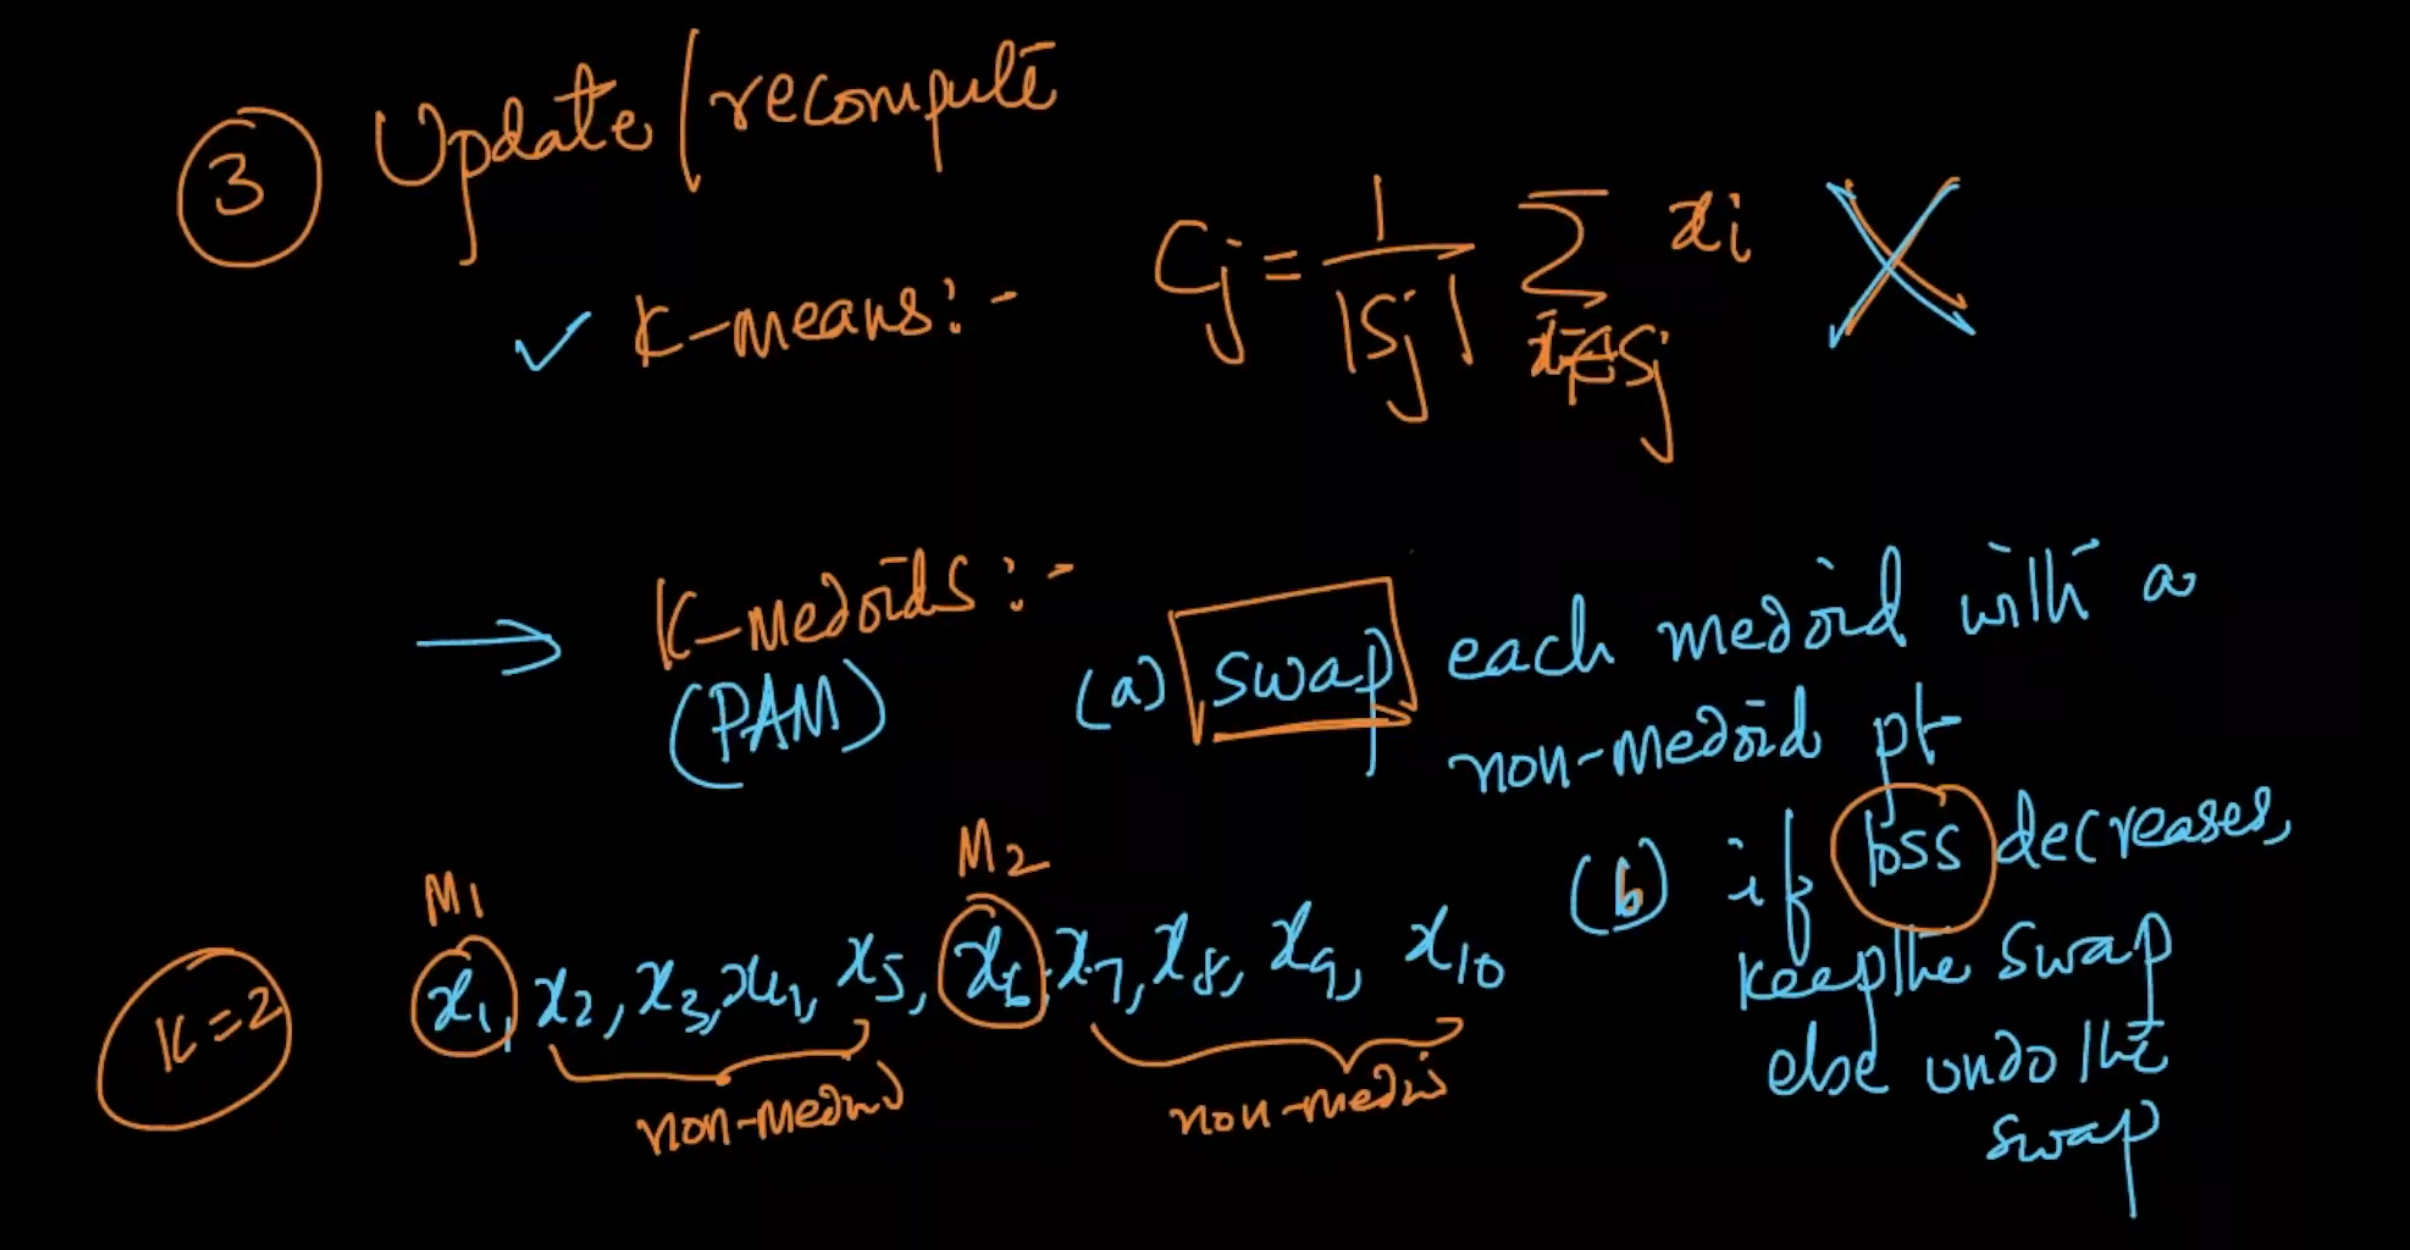 3 Update / recompute
✓ K-means:- Cj = 1/|Sj| Σ xi∈Sj xi X
→ K-medoids:-
(PAM)
(a) swap each medoid with a
non-medoid pt
(b) if loss decreases,
keep the swap
else undo the
swap
M1 M2
K=2 x1, x2, x3, x4, x5, x6, x7, x8, x9, x10
non-medoid non-medoi